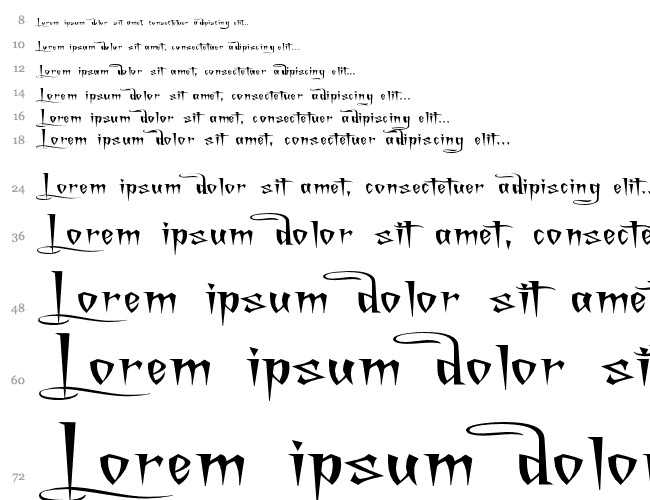 8 Lorem ipsum dolor sit amet, consectetuer adipiscing elit...
10 Lorem ipsum dolor sit amet, consectetuer adipiscing elit...
12 Lorem ipsum dolor sit amet, consectetuer adipiscing elit...
14 Lorem ipsum dolor sit amet, consectetuer adipiscing elit...
16 Lorem ipsum dolor sit amet, consectetuer adipiscing elit...
18 Lorem ipsum dolor sit amet, consectetuer adipiscing elit...
24 Lorem ipsum dolor sit amet, consectetuer adipiscing elit..
36 Lorem ipsum dolor sit amet, consecte
48 Lorem ipsum dolor sit ame
60 Lorem ipsum dolor si
72 Lorem ipsum dolo